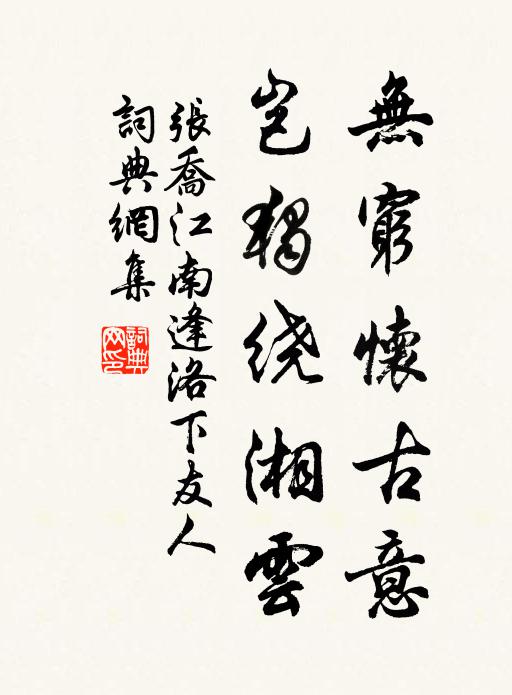 無窮懷古意
豈獨繞湘雲
張喬江南逢洛下友人
詞典網集
詞典網印